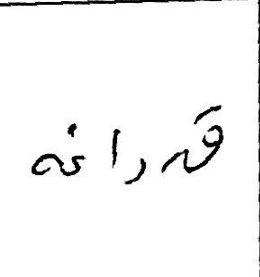 قدرانه